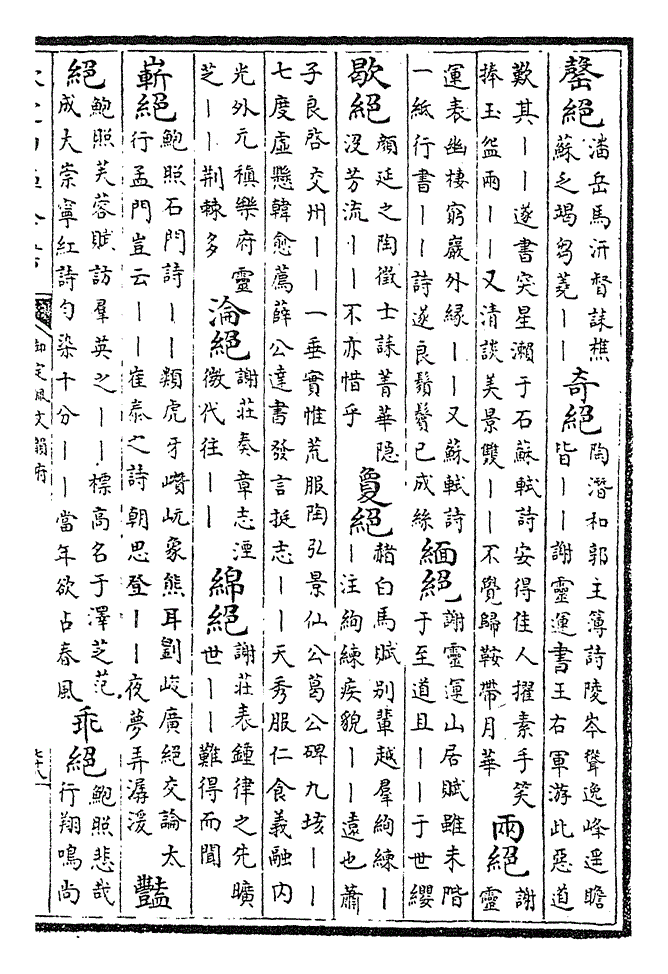 罄絕潘岳馬汧督誄樵蘇乏竭芻蕘丨丨奇絕陶潛和郭主簿詩陵岑聳逸峰遥瞻皆丨丨謝靈運書王右軍游此惡道
歎其丨丨遂書突星瀨于石蘇軾詩安得佳人擢素手笑捧玉盌兩丨丨又清談美景雙丨丨不覺歸鞍帶月華兩絕謝靈
運表幽棲窮巖外緣丨丨又蘇軾詩一紙行書丨丨詩遂良鬚鬢已成絲緬絕謝靈運山居賦雖未階于至道且丨丨于世纓
歇絕顔延之陶徵士誄菁華隠没芳流丨丨不亦惜乎敻絕赭白馬賦别輩越羣絢練丨丨注絢練疾貌丨丨遠也蕭
子良啓交州丨丨一垂實惟荒服陶弘景仙公葛公碑九垓丨丨七度虚懸韓愈薦薛公達書發言挺志丨丨天秀服仁食義融内
光外元稹樂府靈芝丨丨荆棘多淪絕謝莊奏章志湮微代往丨丨綿絕謝莊表鍾律之先曠世丨丨難得而聞
嶄絕鮑照石門詩丨丨類虎牙巑岏象熊耳劉峻廣絕交論太行孟門豈云丨丨崔泰之詩朝思登丨丨夜夢弄潺湲豔
絕鮑照芙蓉賦訪羣英之丨丨標高名于澤芝范成大崇寧紅詩匀染十分丨丨當年欲占春風乖絕鮑照悲哉行翔鳴尚
御定佩文韻府